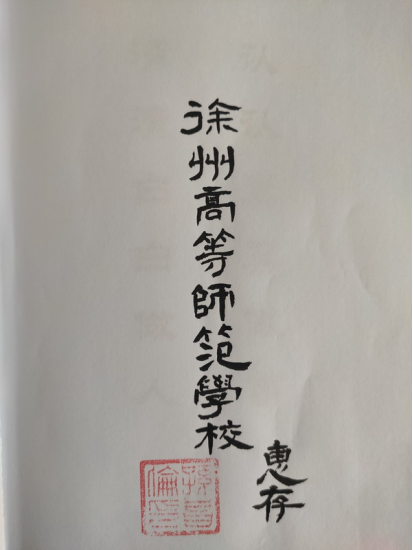 徐州高等師范學校
惠存